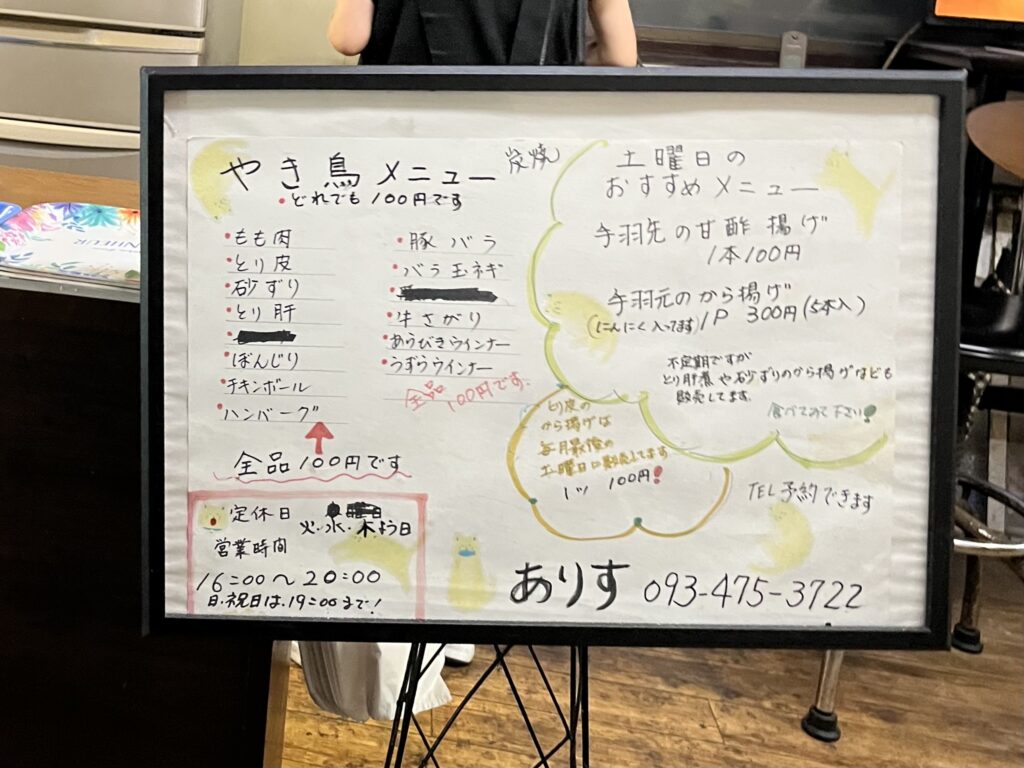 やき鳥メニュー 炭焼
・どれでも100円です
・もも肉
・とり皮
・砂ずり
・とり肝
・ぼんじり
・チキンボール
・ハンバーグ
全品100円です
・豚バラ
・バラ玉ネギ
・牛さがり
・あらびきウインナー
・うずらウインナー
全品100円です
土曜日の
おすすめメニュー
手羽先の甘酢揚げ
1本100円
手羽元のから揚げ
(にんにく入ってます)1P 300円(5本入)
不定期ですが
とり肝煮や砂ずりのから揚げなども
販売してます
食べてみて下さい!
とり皮の
から揚げは
毎月最後の
土曜日に販売してます
1ツ 100円!
TEL予約できます
定休日
火・水・木よう日
営業時間
16:00〜20:00
日・祝日は、19:00まで!
ありす 093-475-3722